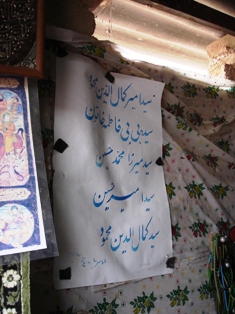 سید امیر کمال الدین محمود
سیده بی بی فاطمه خاتون
سید میرزا محمد حسین
سید امیر حسین
سید کمال الدین محمود